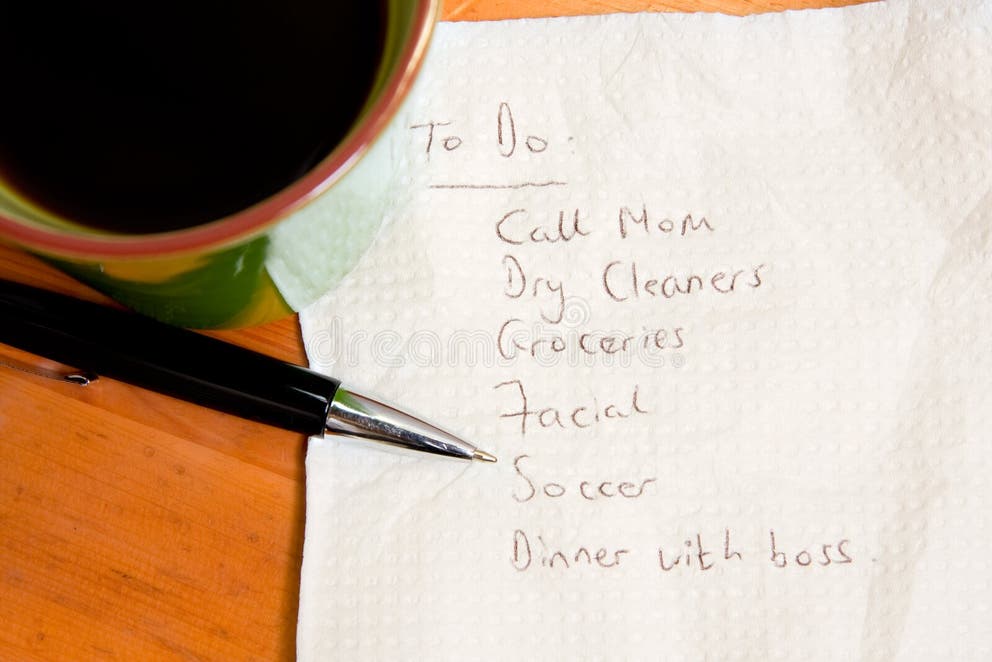 To Do.
Call Mom
Dry Cleaners
Groceries
Facial
Soccer
Dinner with boss.
dreamstime.com